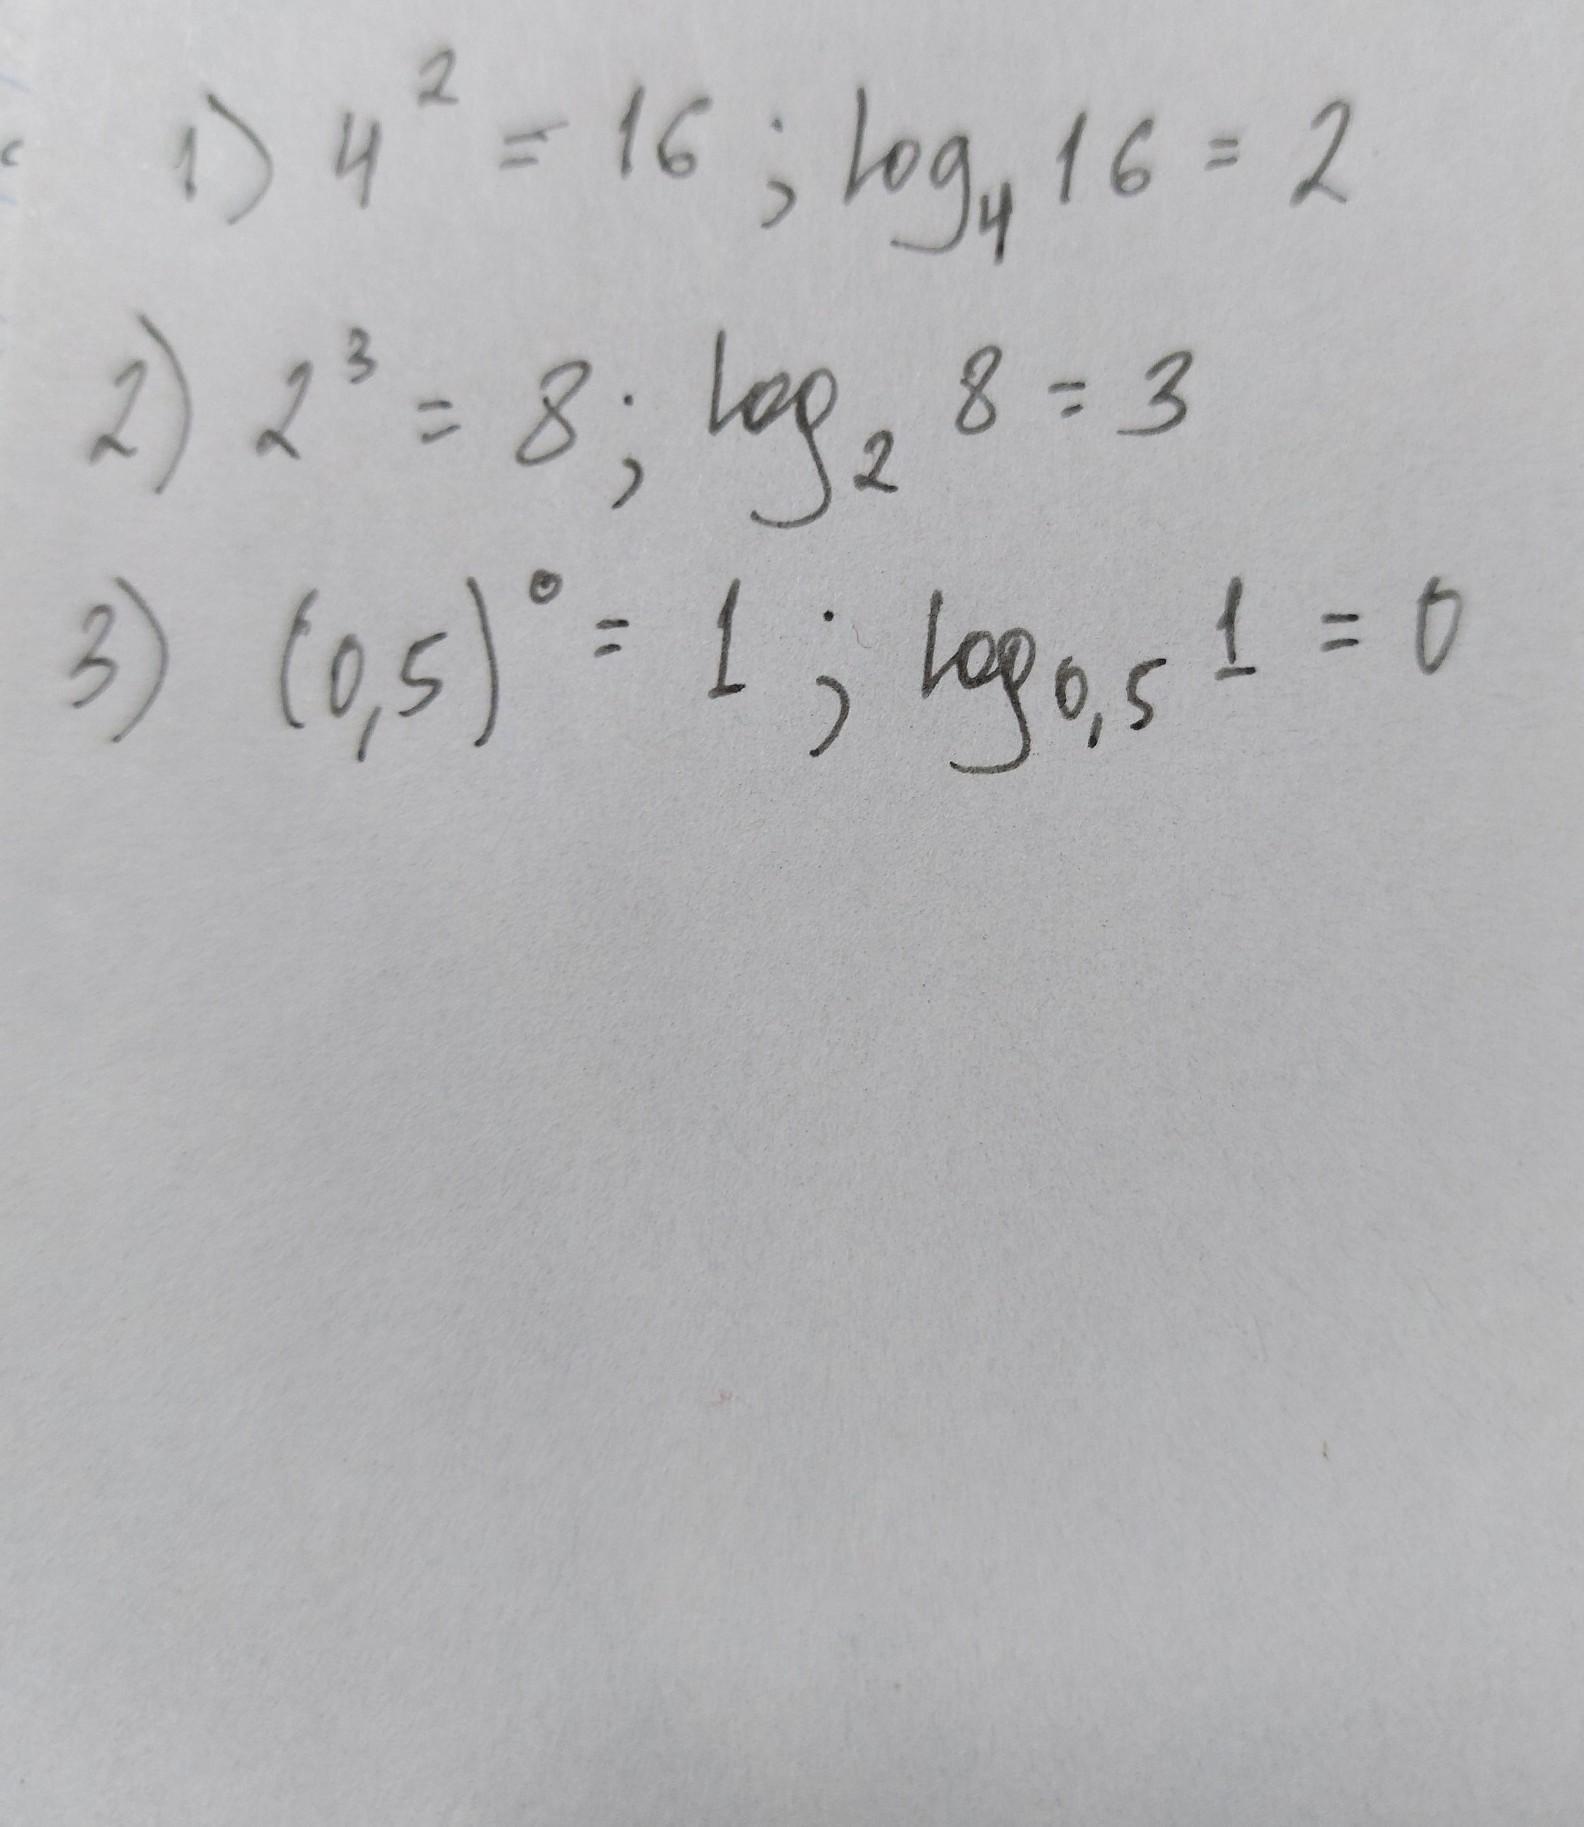 1) 4² = 16 ; log₄ 16 = 2
2) 2³ = 8 ; log₂ 8 = 3
3) (0,5)⁰ = 1 ; log₀,₅ 1 = 0